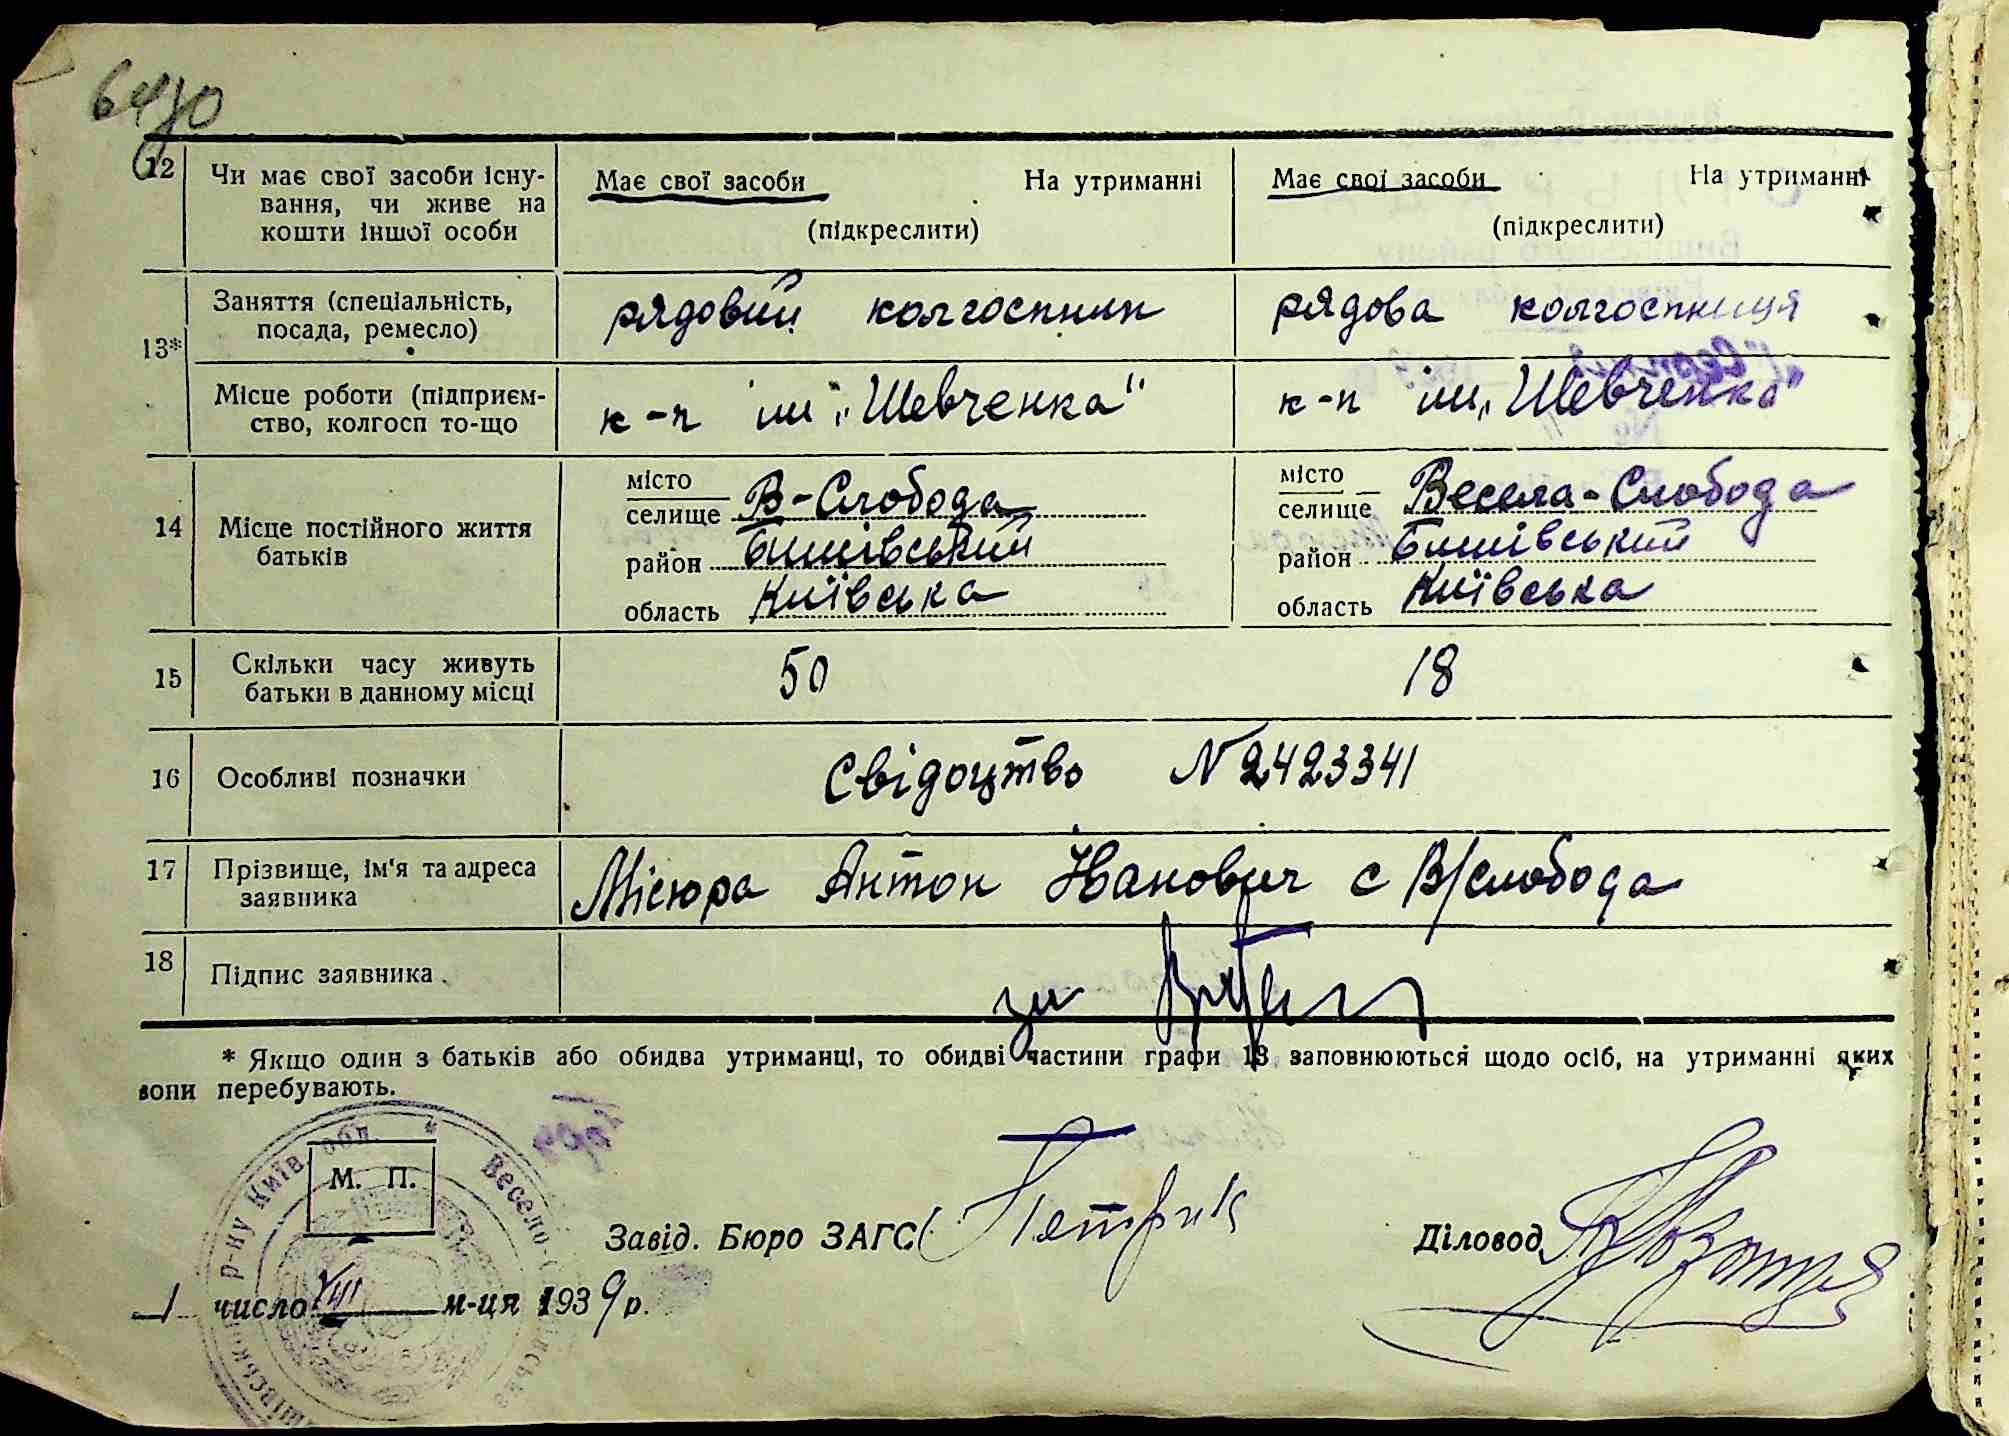 6430
12 Чи має свої засоби існу- Має свої засоби На утриманні Має свої засоби На утриманні
вання, чи живе на (підкреслити) (підкреслити)
кошти іншої особи
13* Заняття (спеціальність, рядовий колгоспник рядова колгоспниця
посада, ремесло)
Місце роботи (підприєм- к-п ім „Шевченка" к-п ім „Шевченка"
ство, колгосп то-що
14 Місце постійного життя батьків
місто
селище В-Слобода
район Бишівський
область Київська
місто
селище Весела-Слобода
район Бишівський
область Київська
15 Скільки часу живуть 50 18
батьки в данному місці
16 Особливі позначки Свідоцтво N 2423341
17 Прізвище, ім'я та адреса Місюра Антон Іванович с В/слобода
заявника
18 Підпис заявника за
* Якщо один з батьків або обидва утриманці, то обидві частини графи 13 заповнюються щодо осіб, на утриманні яких
вони перебувають.
р-ну Київ. обл. * Весело-
М. П.
Завід. Бюро ЗАГС Петрик Діловод
1 число VIII м-ця 1939 р.